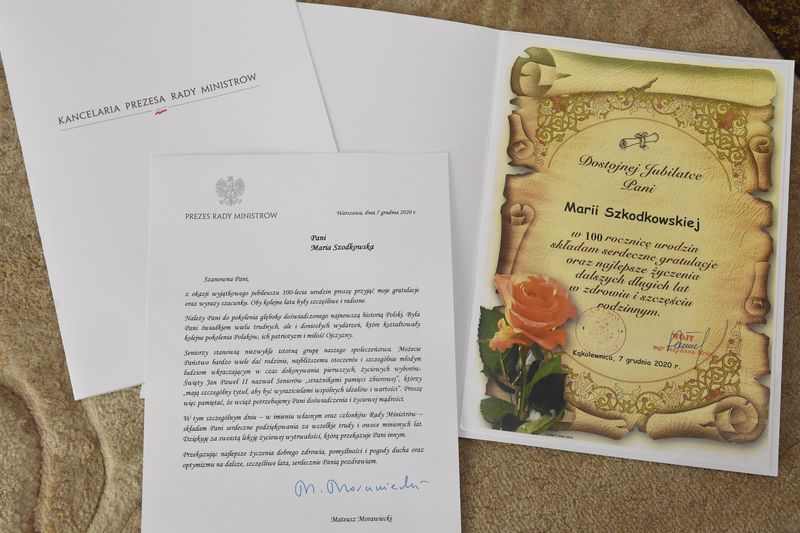 KANCELARIA PREZESA RADY MINISTRÓW
PREZES RADY MINISTRÓW
Warszawa, dnia 7 grudnia 2020 r.
Pani
Maria Szodkowska
Szanowna Pani,
z okazji wyjątkowego jubileuszu 100-lecia urodzin proszę przyjąć moje gratulacje
oraz wyrazy szacunku. Oby kolejne lata były szczęśliwe i radosne.
Należy Pani do pokolenia głęboko doświadczonego najnowszą historią Polski. Była
Pani świadkiem wielu trudnych, ale i doniosłych wydarzeń, które kształtowały
kolejne pokolenia Polaków, ich patriotyzm i miłość Ojczyzny.
Seniorzy stanowią niezwykle istotną grupę naszego społeczeństwa. Możecie
Państwo bardzo wiele dać rodzinie, najbliższemu otoczeniu i szczególnie młodym
ludziom wkraczającym w czas dokonywania pierwszych, życiowych wyborów.
Święty Jan Paweł II nazwał Seniorów „strażnikami pamięci zbiorowej”, którzy
„mają szczególny tytuł, aby być wyrazicielami wspólnych ideałów i wartości”. Proszę
więc pamiętać, że wciąż potrzebujemy Pani doświadczenia i życiowej mądrości.
W tym szczególnym dniu – w imieniu własnym oraz członków Rady Ministrów –
składam Pani serdeczne podziękowania za wszelkie trudy i owoce minionych lat.
Dziękuję za swoistą lekcję życiowej wytrwałości, którą przekazuje Pani innym.
Przekazując najlepsze życzenia dobrego zdrowia, pomyślności i pogody ducha oraz
optymizmu na dalsze, szczęśliwe lata, serdecznie Panią pozdrawiam.
M. Morawiecki
Mateusz Morawiecki
Dostojnej Jubilatce
Pani
Marii Szkodkowskiej
w 100 rocznicę urodzin
składam serdeczne gratulacje
oraz najlepsze życzenia
dalszych długich lat
w zdrowiu i szczęściu
rodzinnym.
WÓJT
Kąkolewnica, 7 grudnia 2020 r.